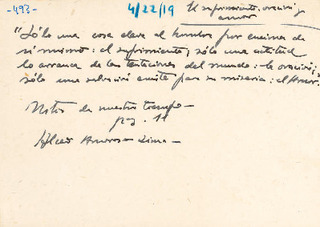 -493-
4/22/19
El sufrimiento, oración y
amor
"Sólo una cosa eleva al hombre por encima de
sí mismo: el sufrimiento; sólo una actitud
lo arranca de las tentaciones del mundo: la oración;
sólo una salvación existe para su miseria: el Amor."
Mitos de nuestro tiempo -
pag. 11
Alceo Amoroso Lima -